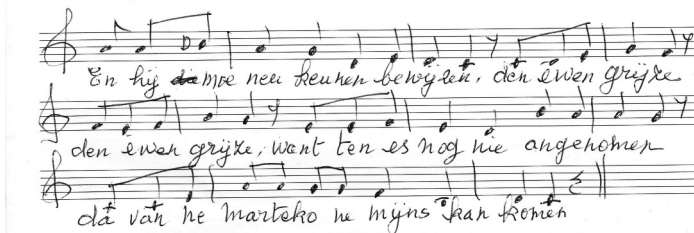 En hij moe nen keunen bewijzen, den éwen grijze
den éwen grijze, want ten es nog nie angenomen
dá ván ne marteko ne mijns kan komen